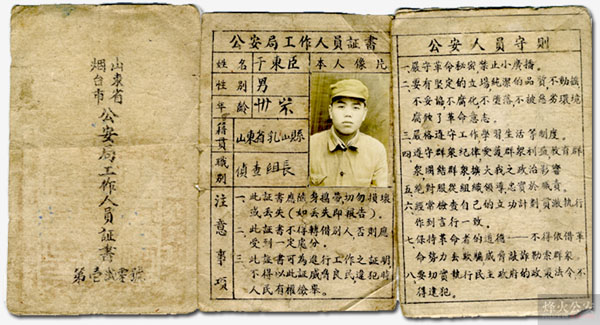 山東省
烟台市
公安局工作人員証書
第壹 零號
公安局工作人員証書
姓名 于東臣 本人像片
性别 男
年齡 卅
籍貫 山東省乳山縣
職别 偵查組長
注意事項
一、此証書應随身携带,切勿損壞
或丢失(如丢失即报告)。
二、此証書不得轉借别人,否則應
受到一定處分。
三、此証書可為進行工作之証明
不得以此証書威脅良民違犯時
人民有權儉舉。
公安人員守則
一嚴守革命秘密禁止小廣播。
二要有堅定的立場純潔的品質不動搖
不妥協不腐化不墮落不被惡劣環境
腐蝕了革命意志。
三嚴格遵守工作學習生活等制度。
四遵守群衆紀律愛護群衆利益教育群
衆團結群衆擴大我之政治影響
五絶對服從組織領導忠實於職責。
六經常檢查自己的立功計劃貫澈執行
作到言行一致。
七保持革命者的道德——不得依借革
命勢力去欺騙威脅敲詐勒索群衆。
八要切實執行民主政府的政策法令不
得違犯。
烽火公